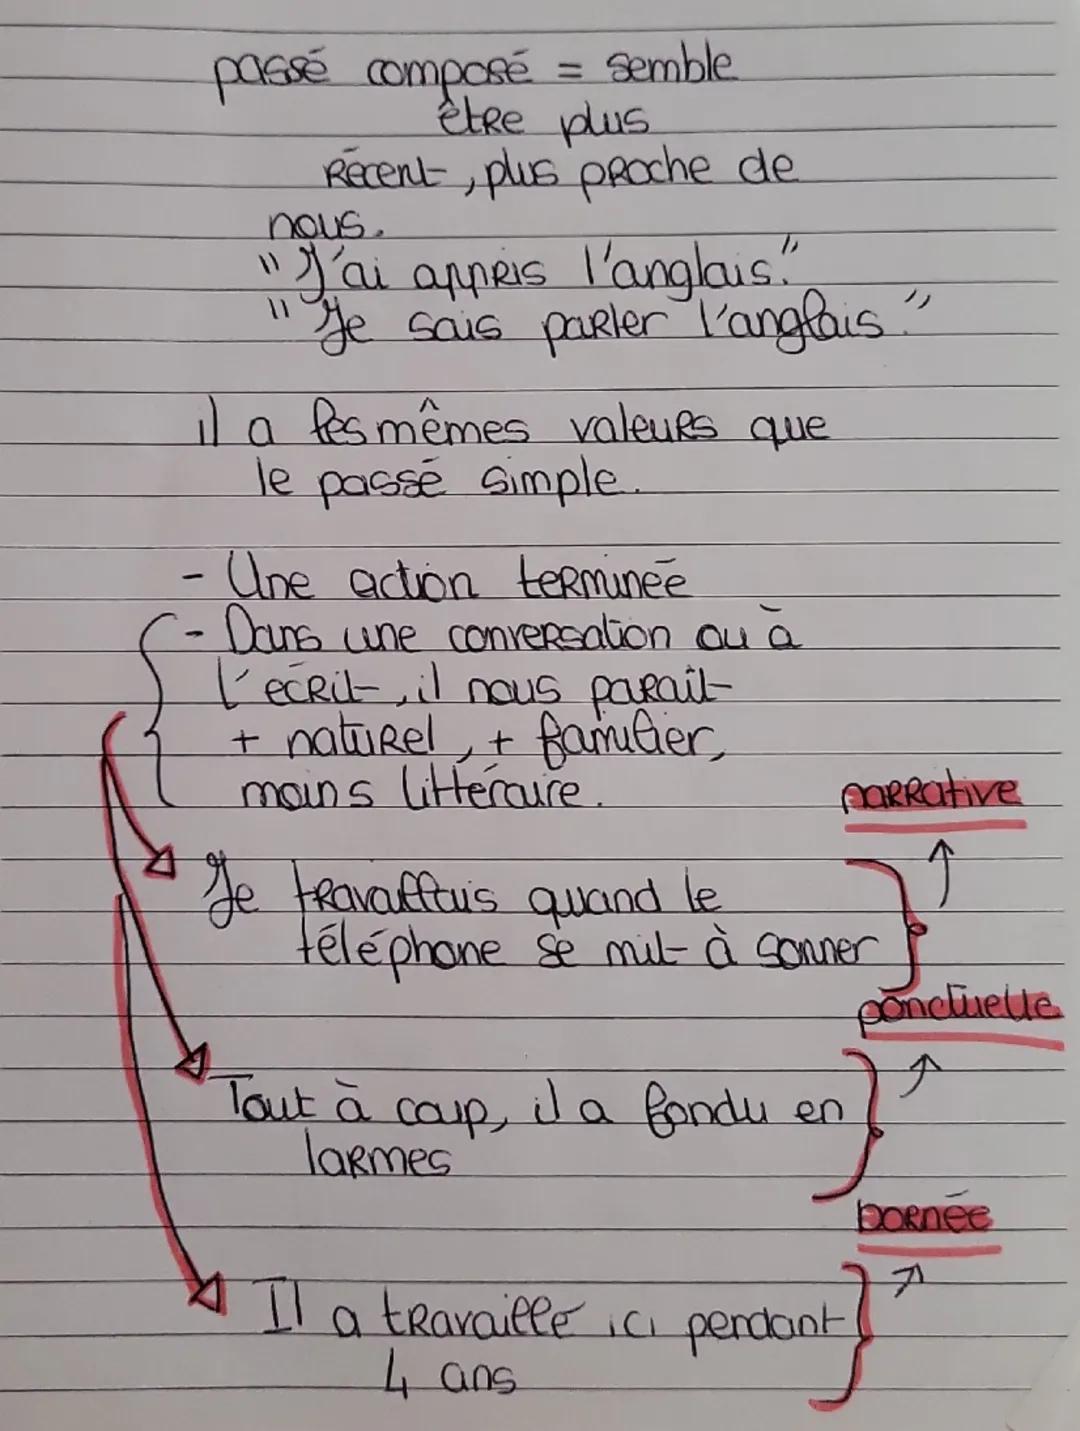 passé composé = semble
être plus
récent, plus proche de
nous.
"J'ai appris l'anglais."
"Je sais parler l'anglais."
il a les mêmes valeurs que
le passé simple.
- Une action terminée
- Dans une conversation ou à
l'écrit, il nous parait
+ naturel, + familier,
moins littéraire.
narrative
Je travaillais quand le
téléphone se mit à sonner
ponctuelle
Tout à coup, il a fondu en
larmes
bornée
Il a travaillé ici pendant
4 ans